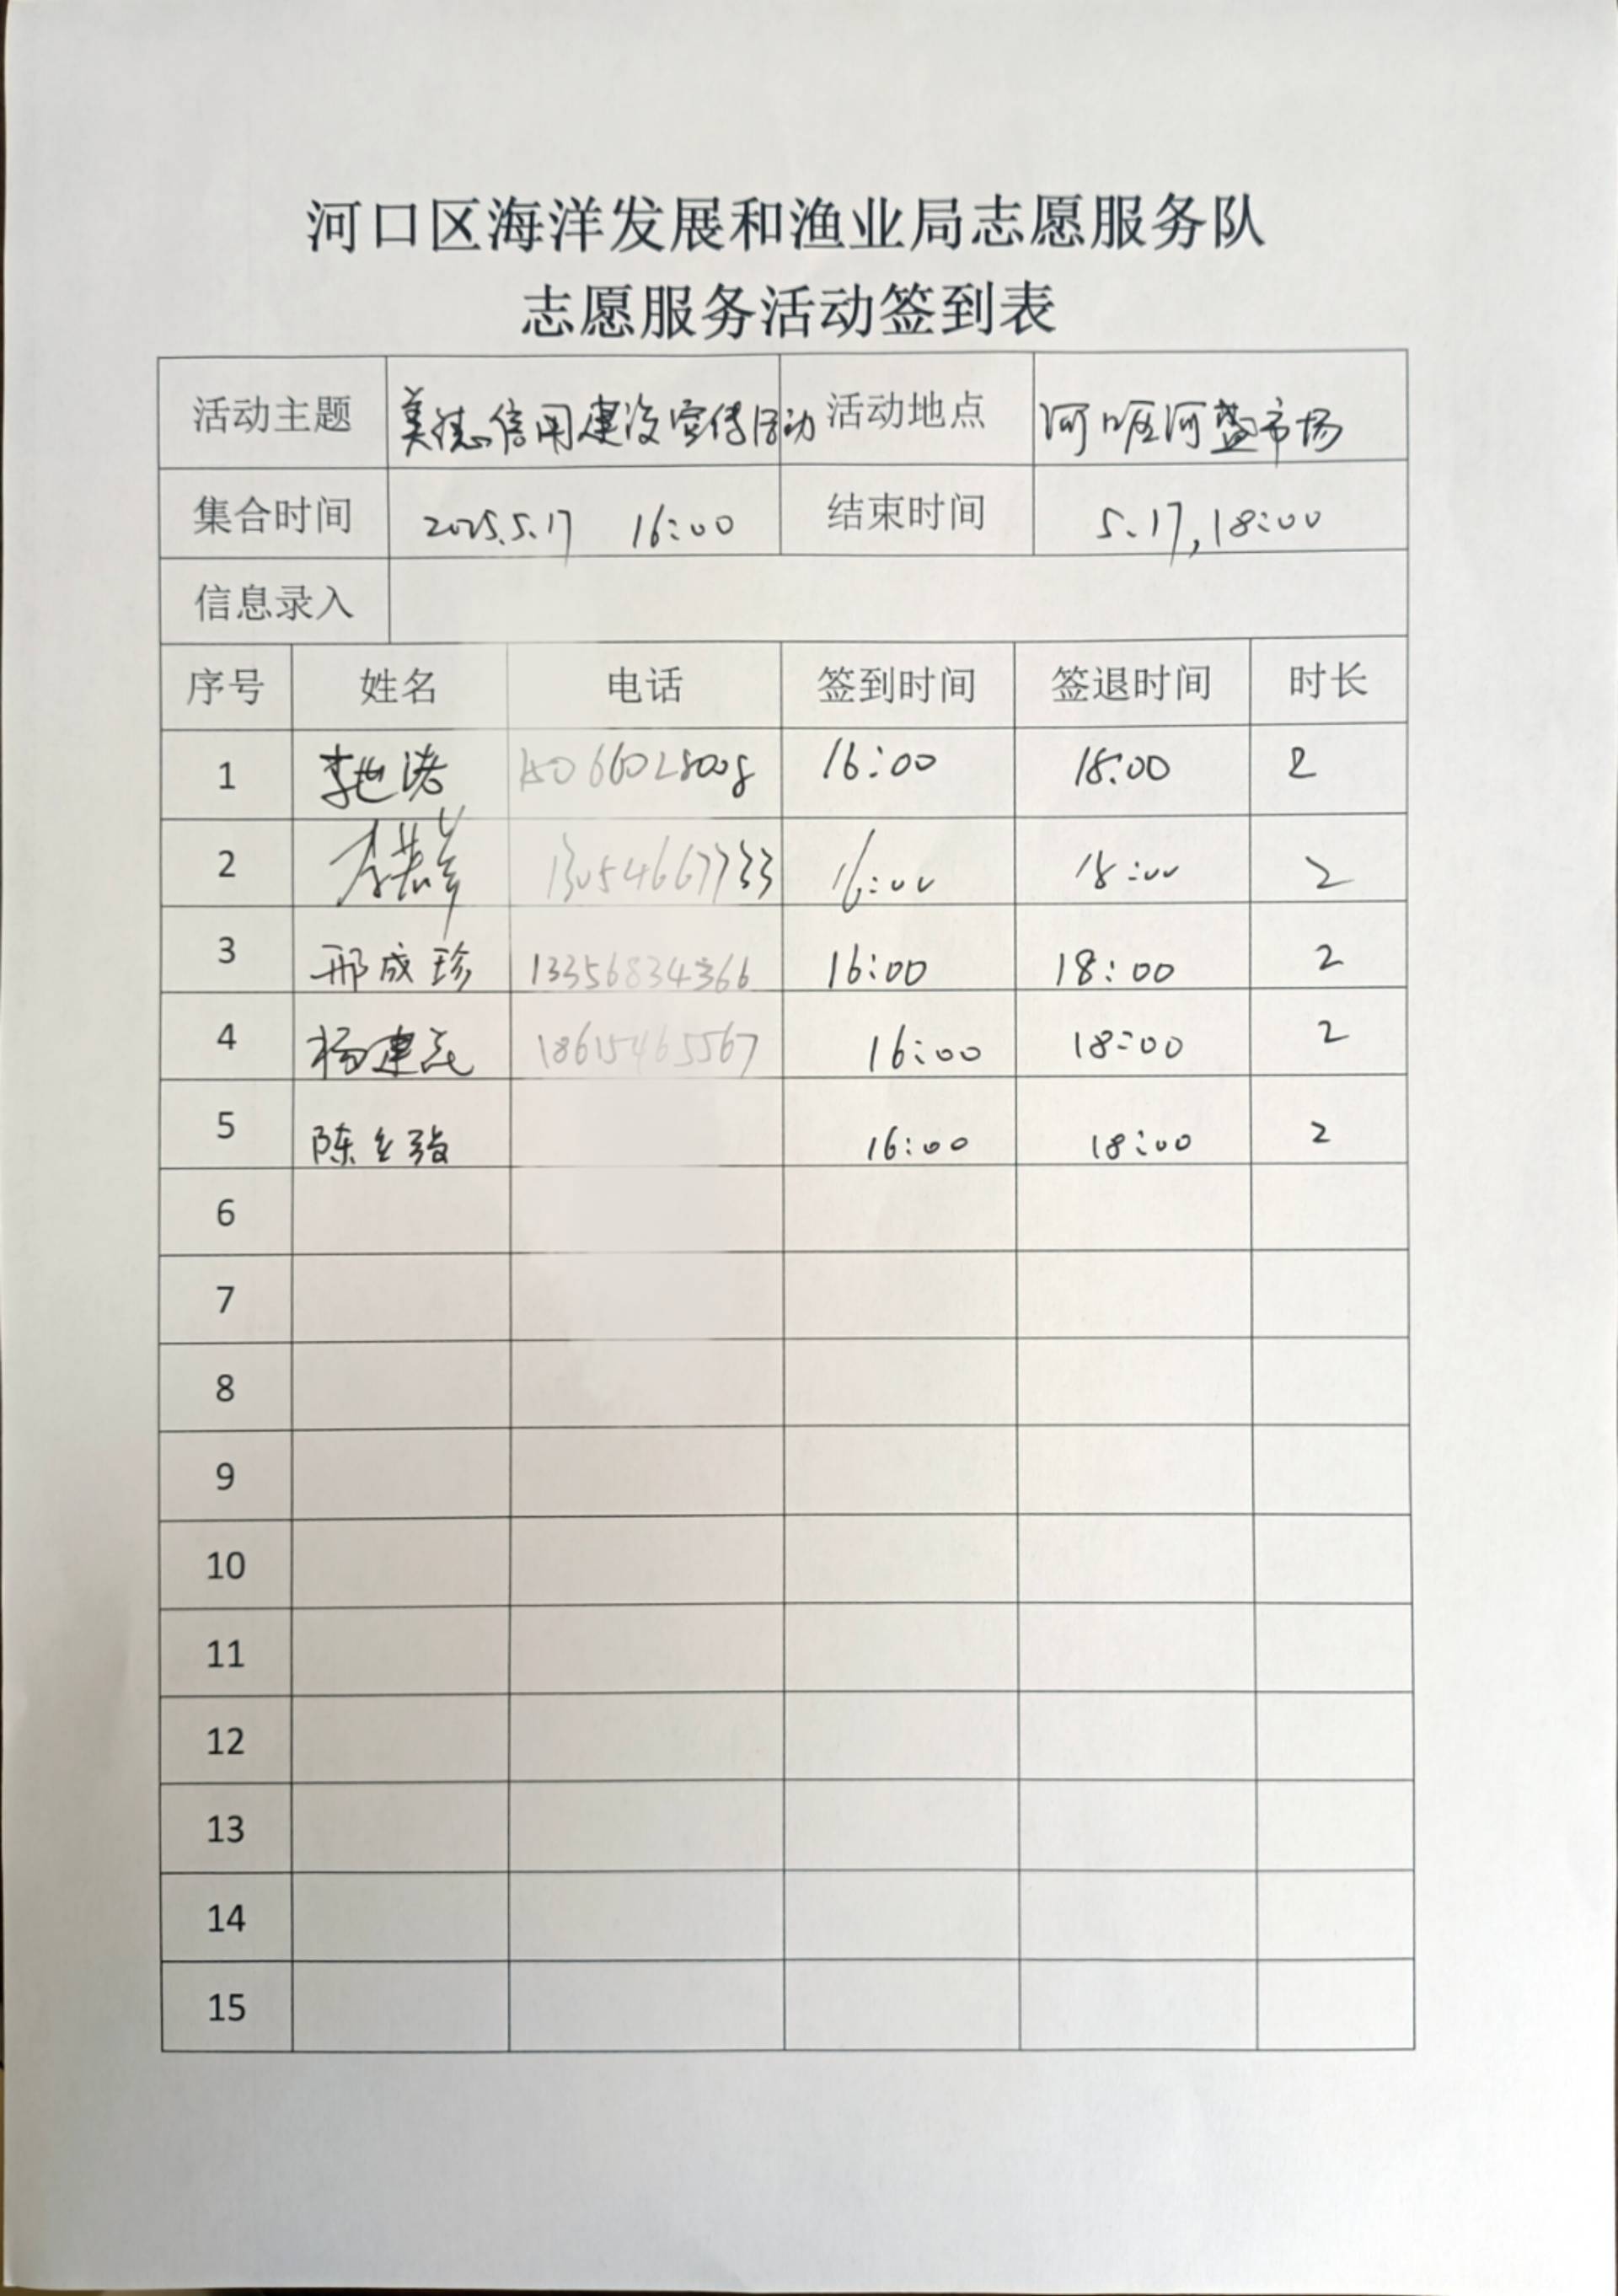 河口区海洋发展和渔业局志愿服务队
志愿服务活动签到表
活动主题 美德信用建设宣传活动 活动地点 河口区河盛市场
集合时间 2025.5.17 16:00 结束时间 5.17,18:00
信息录入
序号 姓名 电话 签到时间 签退时间 时长
1 李世诺 15066028008 16:00 18:00 2
2 13054667733 16:00 18:00 2
3 邢成珍 13356834366 16:00 18:00 2
4 杨建 18615465567 16:00 18:00 2
5 陈 16:00 18:00 2
6
7
8
9
10
11
12
13
14
15